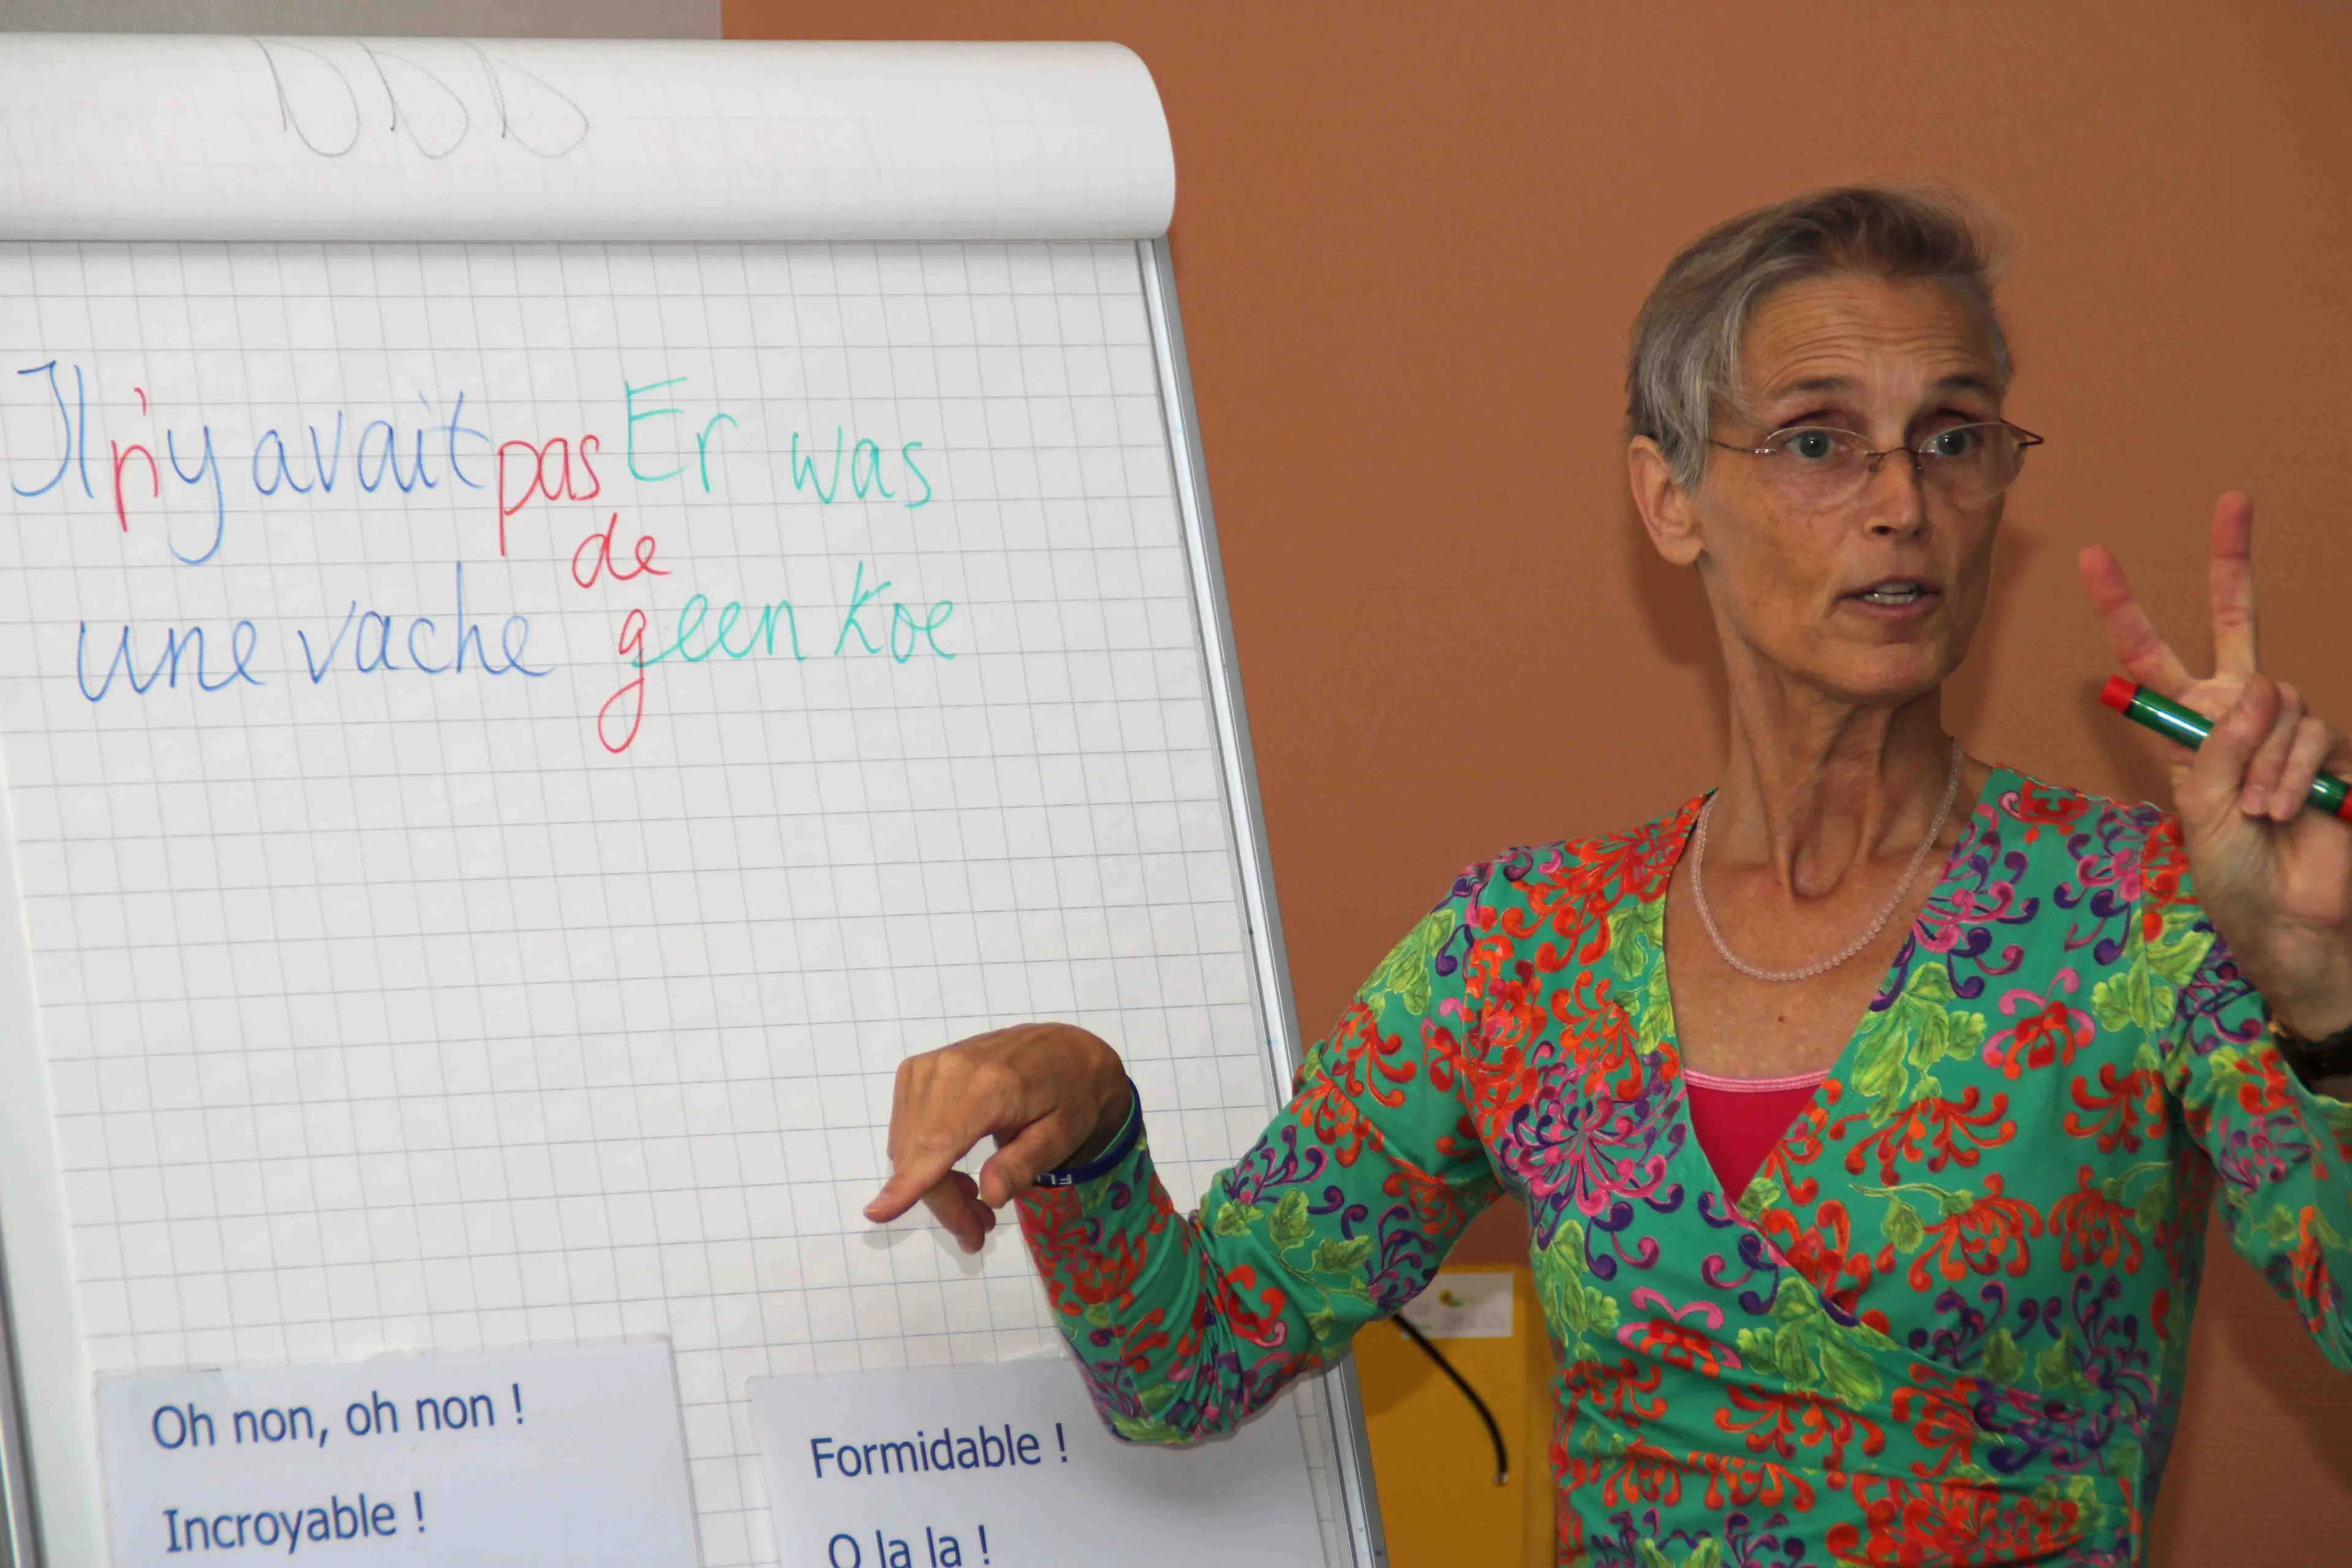 Il n'y avait pas Er was
de
une vache geen koe
Oh non, oh non !
Incroyable !
Formidable !
O la la !